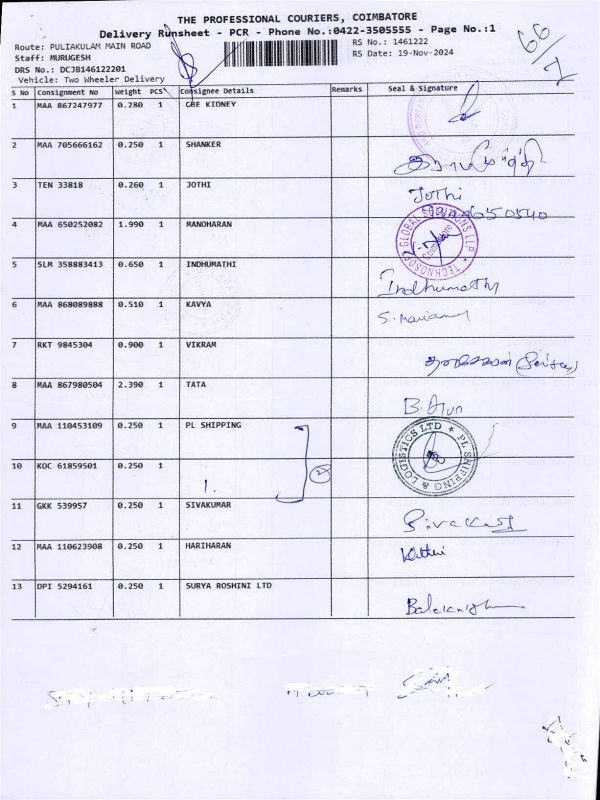 THE PROFESSIONAL COURIERS, COIMBATORE
Delivery Runsheet - PCR - Phone No.:0422-3505555 - Page No.:1
Route: PULIAKULAM MAIN ROAD RS No.: 1461222
Staff: MURUGESH RS Date: 19-Nov-2024
DRS No.: DCJB146122201
Vehicle: Two Wheeler Delivery
66/7
S No Consignment No Weight PCS Consignee Details Remarks Seal & Signature
1 MAA 867247977 0.280 1 CBE KIDNEY
2 MAA 705666162 0.250 1 SHANKER
3 TEN 33818 0.260 1 JOTHI Jothi
4 MAA 650252082 1.990 1 MANOHARAN TECHNOSOFT GLOBAL SOLUTIONS LLP Coimbatore
5 SLM 358883413 0.650 1 INDHUMATHI Indhumathy
6 MAA 868089888 0.510 1 KAVYA
7 RKT 9845304 0.900 1 VIKRAM
8 MAA 867980504 2.390 1 TATA B. Arun
9 MAA 110453109 0.250 1 PL SHIPPING PL SHIPPING & LOGISTICS LTD
10 KOC 61859501 0.250 1 2
11 GKK 539957 0.250 1 SIVAKUMAR
12 MAA 110623908 0.250 1 HARIHARAN
13 DPI 5294161 0.250 1 SURYA ROSHINI LTD